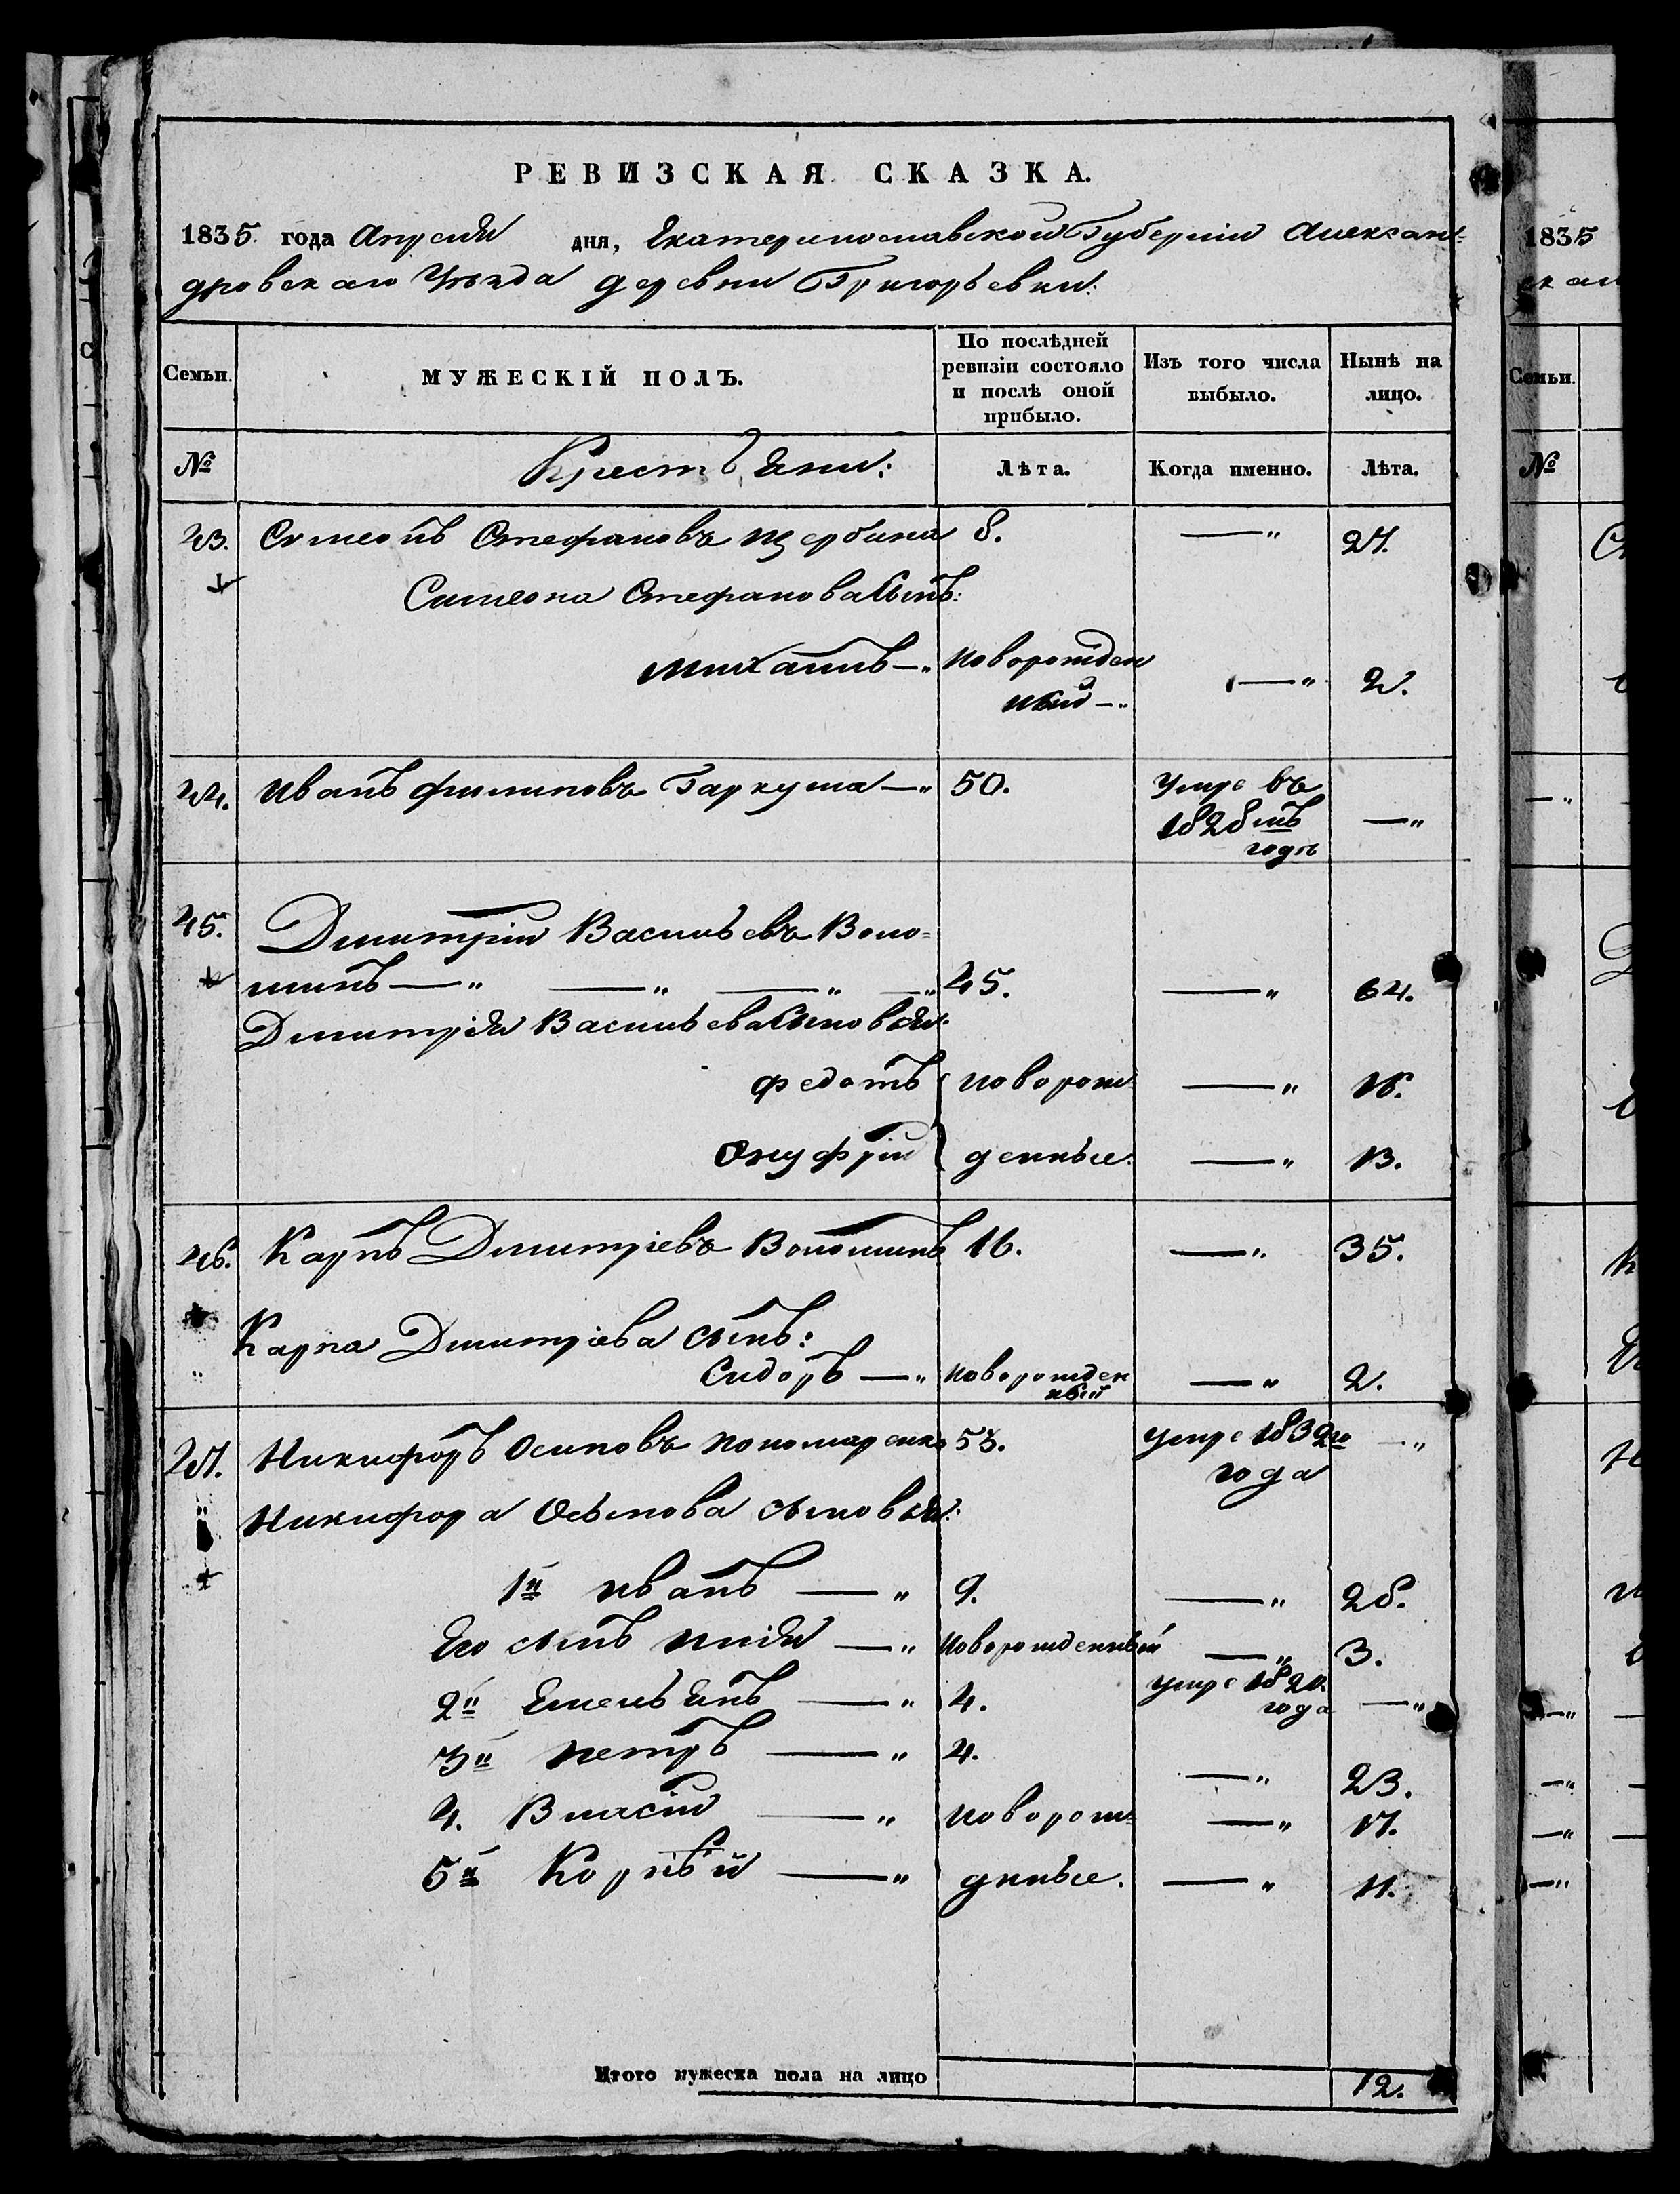 РЕВИЗСКАЯ СКАЗКА.
1835. года Апреля дня, Екатеринославской Губерніи Александ=
дровскаго Уѣзда деревни Григорьевки:
Семьи. МУЖЕСКІЙ ПОЛЪ. По послѣдней ревизіи состояло и послѣ оной прибыло. Изъ того числа выбыло. Нынѣ на лицо.
№ Крестьяни: Лѣта. Когда именно. Лѣта.
23. Симеонъ Стефановъ Щербина 8. —„ 27.
Симеона Стефанова Сынъ:
Михаилъ —„ новорожден —„ 2.
ный —„
24. Иванъ Филиповъ Гаркуша —„ 50. Умре въ
1828мъ —„
годѣ
25. Дмитрій Васильевъ Воло=
шинъ —„ —„ —„ —„ 45. —„ 64.
Дмитрія Васильева Сыновья:
Федотъ новорож —„ 16.
Онуфрій денные. —„ 13.
26. Карпъ Дмитріевъ Волошинъ 16. —„ 35.
Карпа Дмитріева сынъ:
Сидоръ —„ новорожден —„ 2.
ный
27. Никифоръ Осиповъ Пономаренко 53. умре 1832го —„
года
Никифора Осыпова сыновья:
1й Иванъ —„ 9. —„ 28.
Его сынъ Илія —„ новорожденный —„ 3.
2й Емельянъ —„ 4. умре 1820. —„
года
3й Петръ —„ 4. —„ 23.
4. Власій —„ новорож= —„ 17.
5й Корнѣй —„ днные. —„ 11.
Итого мужеска пола на лицо 12.
1835
Семьи.
№